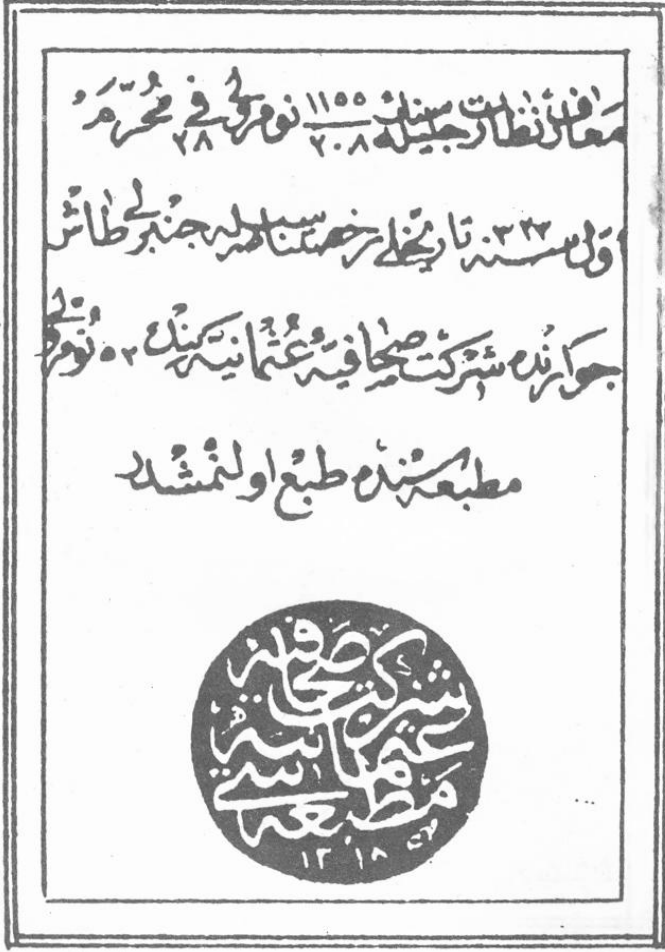 معارف نظارت جليله سنك ١١٥٥/٢٠٨ نومرولى فى ٢٨ محرم
اول سنه ٣٢٣ تاريخلى رخصتنامه سيله جنبرلى طاش
جوارنده شركت صحافيۀ عثمانيه نك ٥٢ نومرولى
مطبعه سنده طبع اولنمشدر
شركت صحافيه
عثمانيه
مطبعه سى
١٣١٨